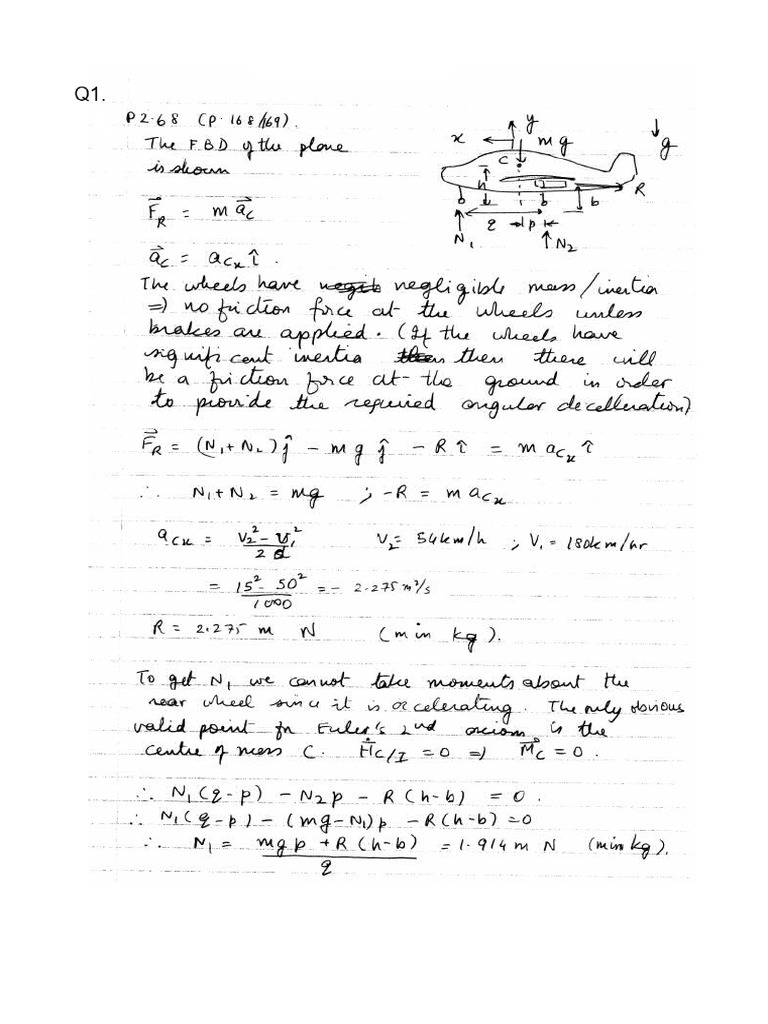 Q1.
P2.68 (p. 168/169).
The F.B.D of the plane
is shown
y
x
mg
g
C
h
R
b
q
p
N₁
N₂
F⃗_R = m a⃗_c
a⃗_c = a_cx î .
The wheels have negligible mass/inertia
⇒ no friction force at the wheels unless
brakes are applied. (If the wheels have
significent inertia then there will
be a friction force at the ground in order
to provide the required angular decelleration)
F⃗_R = (N₁+N₂)ĵ - mg ĵ - R î = m a_cx î
∴ N₁+N₂ = mg ; -R = m a_cx
a_cx = (V₂² - V₁²)/(2d) V₂ = 54km/h ; V₁ = 180km/hr
= (15² - 50²)/1000 = - 2.275 m²/s
R = 2.275 m N (m in kg).
To get N₁ we cannot take moments about the
rear wheel since it is accelerating. The only obvious
valid point for Euler's 2nd axiom is the
centre of mess C. Ḣ_C/I = 0 ⇒ M⃗_C = 0 .
∴ N₁(q-p) - N₂p - R(h-b) = 0 .
∴ N₁(q-p) - (mg-N₁)p - R(h-b) = 0
∴ N₁ = (mgp + R(h-b))/q = 1.914 m N (m in kg).